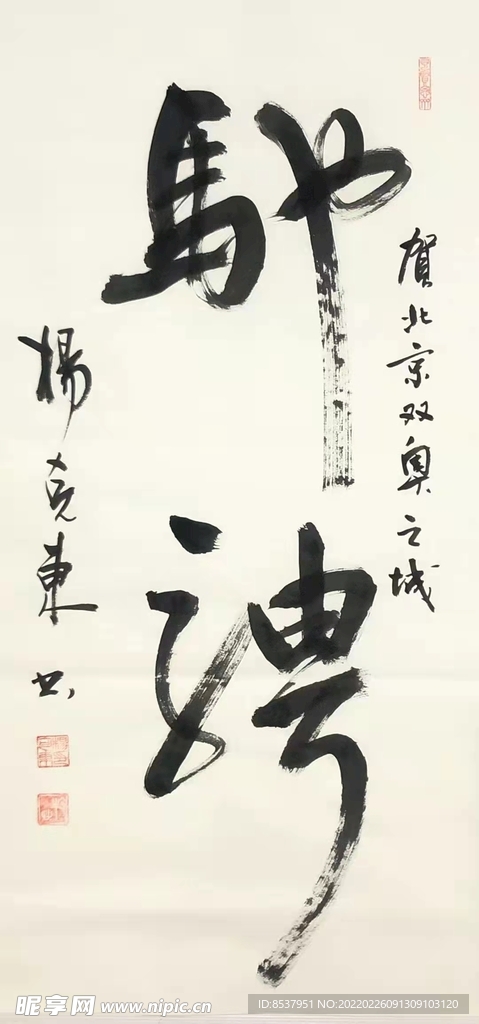 賀北京双奥之城
馳騁
楊克東书
昵享网 www.nipic.cn
ID:8537951 NO:20220226091309103120